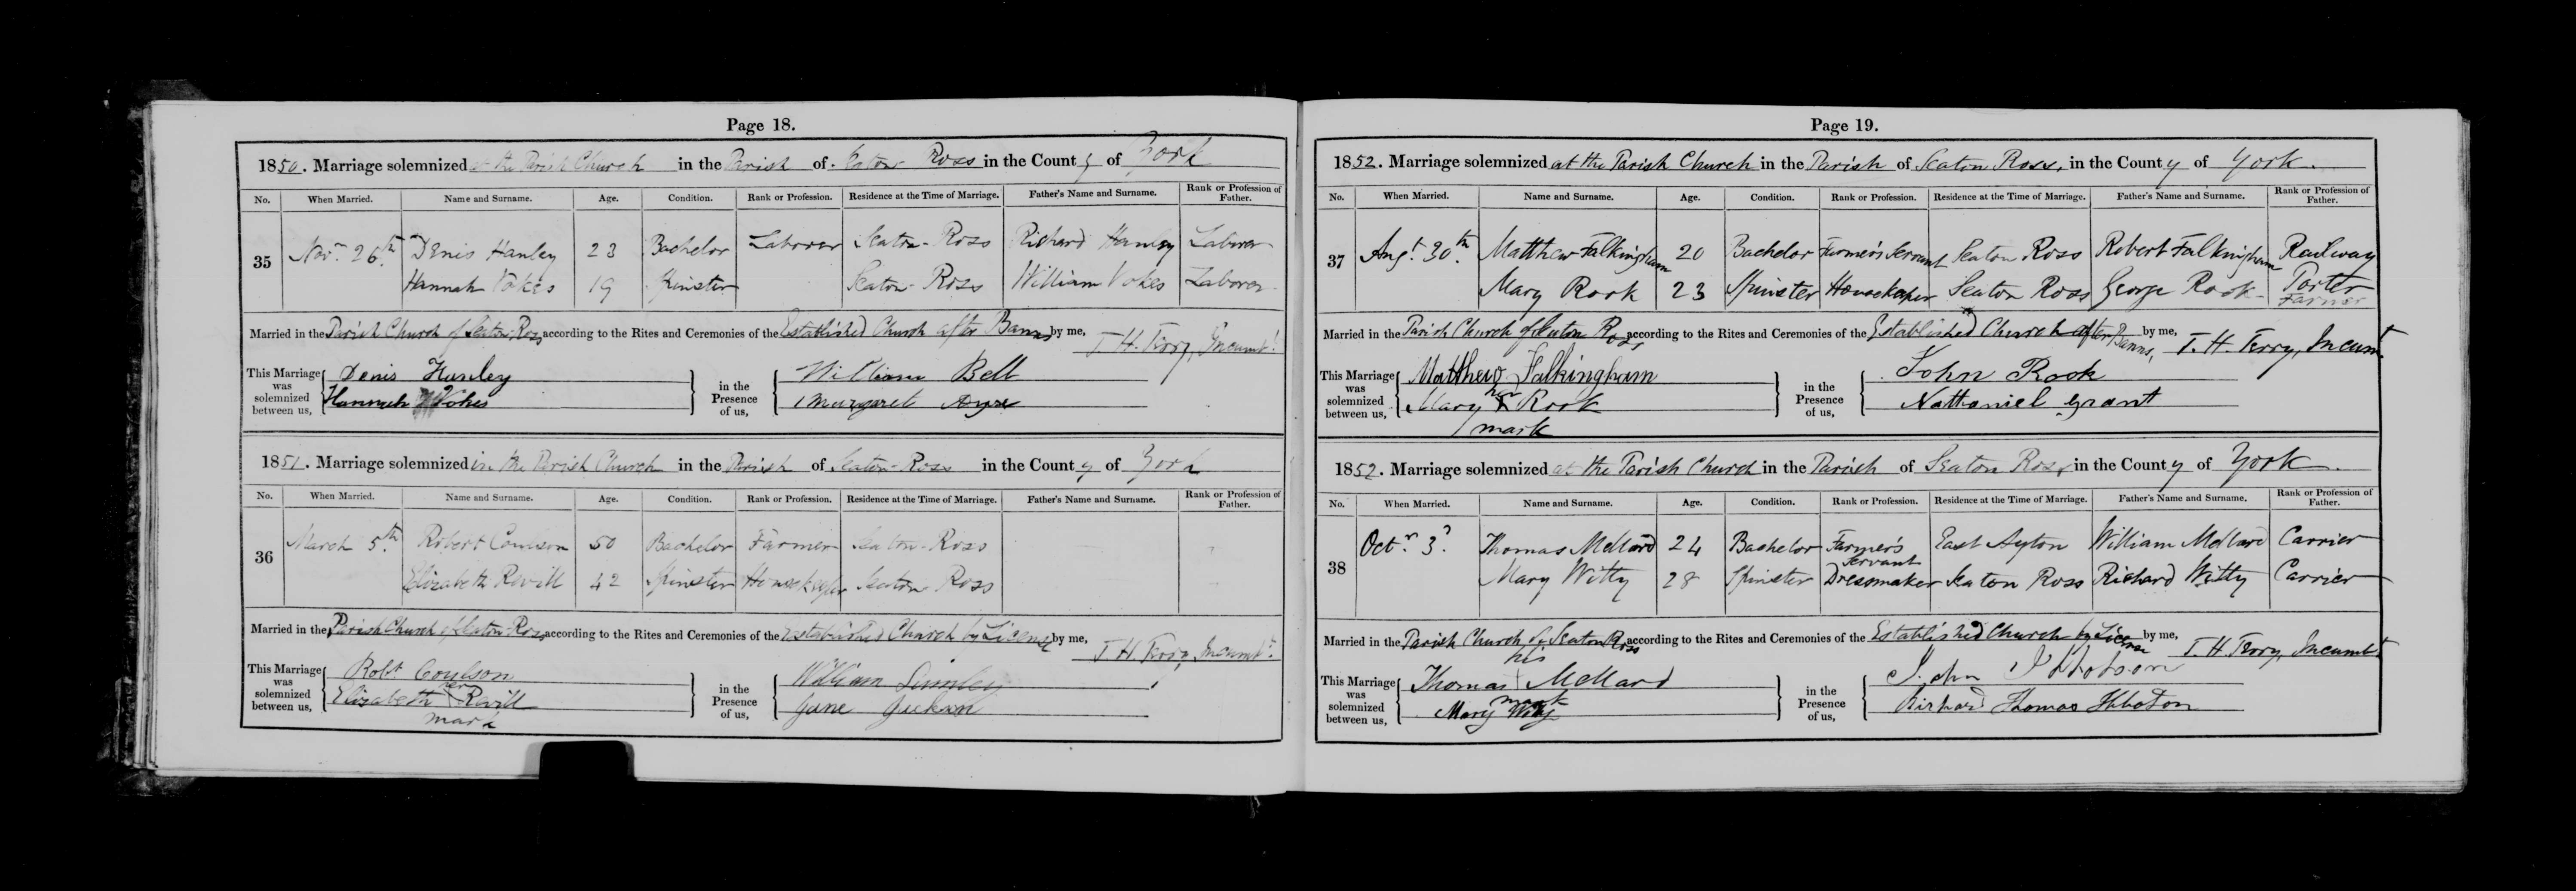 Page 18.
1850. Marriage solemnized at the Parish Church in the Parish of Seaton Ross in the County of York
No. When Married. Name and Surname. Age. Condition. Rank or Profession. Residence at the Time of Marriage. Father's Name and Surname. Rank or Profession of Father.
35 Novr. 26th Denis Hanley 23 Bachelor Laborer Seaton-Ross Richard Hanley Laborer
Hannah Vokes 19 Spinster Seaton-Ross William Vokes Laborer
Married in the Parish Church of Seaton-Ross according to the Rites and Ceremonies of the Established Church after Banns by me, T. H. Terry, Incumbt.
This Marriage was solemnized between us, Denis Hanley in the Presence of us, William Bell
Hannah Vokes Margaret Ayre
1851. Marriage solemnized in the Parish Church in the Parish of Seaton-Ross in the County of York
No. When Married. Name and Surname. Age. Condition. Rank or Profession. Residence at the Time of Marriage. Father's Name and Surname. Rank or Profession of Father.
36 March 5th. Robert Coulson 50 Bachelor Farmer Seaton-Ross
Elizabeth Revill 42 Spinster Housekeeper Seaton Ross
Married in the Parish Church of Seaton-Ross according to the Rites and Ceremonies of the Established Church by License by me, T. H. Terry, Incumbt.
This Marriage was solemnized between us, Robt. Coulson in the Presence of us, William
Elizabeth her Revill Jane Jackson
mark
Page 19.
1852. Marriage solemnized at the Parish Church in the Parish of Seaton Ross, in the County of York.
No. When Married. Name and Surname. Age. Condition. Rank or Profession. Residence at the Time of Marriage. Father's Name and Surname. Rank or Profession of Father.
37 Augt. 30th. Matthew Falkingham 20 Bachelor Farmer's Servant Seaton Ross Robert Falkingham Railway Porter
Mary Rook 23 Spinster Housekeeper Seaton Ross George Rook Farmer
Married in the Parish Church of Seaton Ross, according to the Rites and Ceremonies of the Established Church after Banns, by me, T. H. Terry, Incumt.
This Marriage was solemnized between us, Matthew Falkingham in the Presence of us, John Rook
Mary her X Rook Nathaniel Grant
mark
1852. Marriage solemnized at the Parish Church in the Parish of Seaton Ross, in the County of York.
No. When Married. Name and Surname. Age. Condition. Rank or Profession. Residence at the Time of Marriage. Father's Name and Surname. Rank or Profession of Father.
38 Octr. 3d. Thomas Mellard 24 Bachelor Farmer's Servant East Ayton William Mellard Carrier
Mary Witty 28 Spinster Dressmaker Seaton Ross Richard Witty Carrier
Married in the Parish Church of Seaton Ross according to the Rites and Ceremonies of the Established Church by License by me, T. H. Terry, Incumbt
his
This Marriage was solemnized between us, Thomas Mellard in the Presence of us, John Ibbotson
mark
Mary Witty Richard Thomas Ibbotson